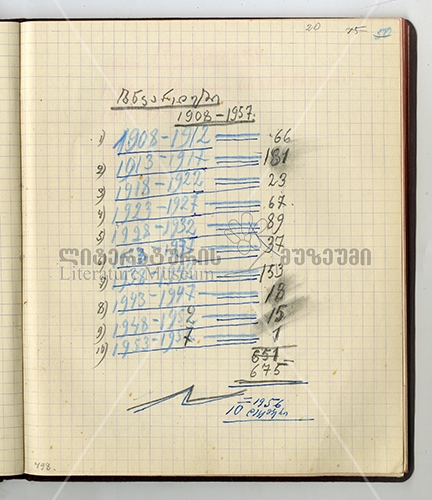 20 15
1908-1957.
1) 1908-1912 66
2) 1913-1917 181
3) 1918-1922 23
4) 1923-1927 67
5) 1928-1932 89
6) 1933-1937 37
ლიტერატურის მუზეუმი
Literature Museum
7) 1938-1942 153
8) 1943-1947 18
9) 1948-1952 15
10) 1953-1957 1
651
675
10 1956
498.